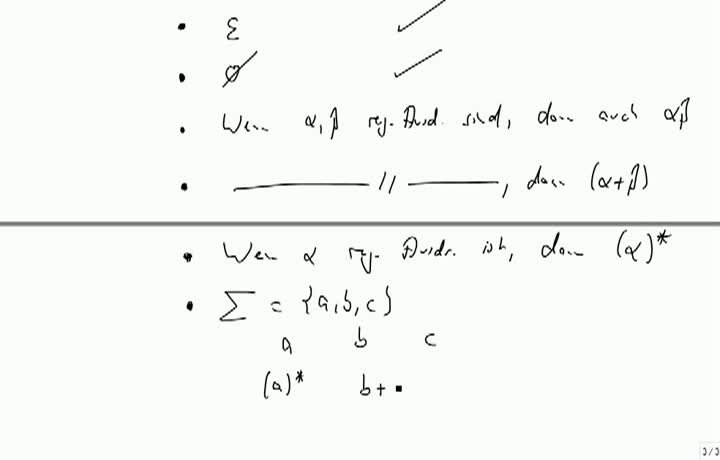 • ε ✓
• ∅ ✓
• Wenn α, β reg. Ausd. sind, dann auch αβ
• ———— // ————, dann (α+β)
• Wenn α reg. Ausdr. ist, dann (α)*
• Σ = {a, b, c}
a b c
(a)* b+
3/3